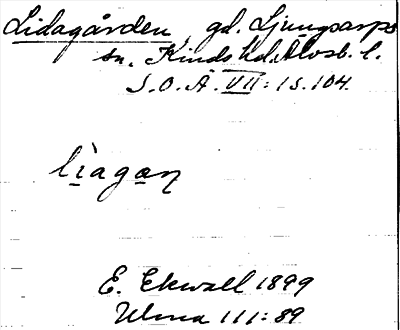 Lidagården, gd. Ljungsarps
sn. Kinds hd. Älvsb. l.
S.O.Ä. VII:1 s. 104.
lìagaṇ
E. Ekwall 1899
Ulma 111:89